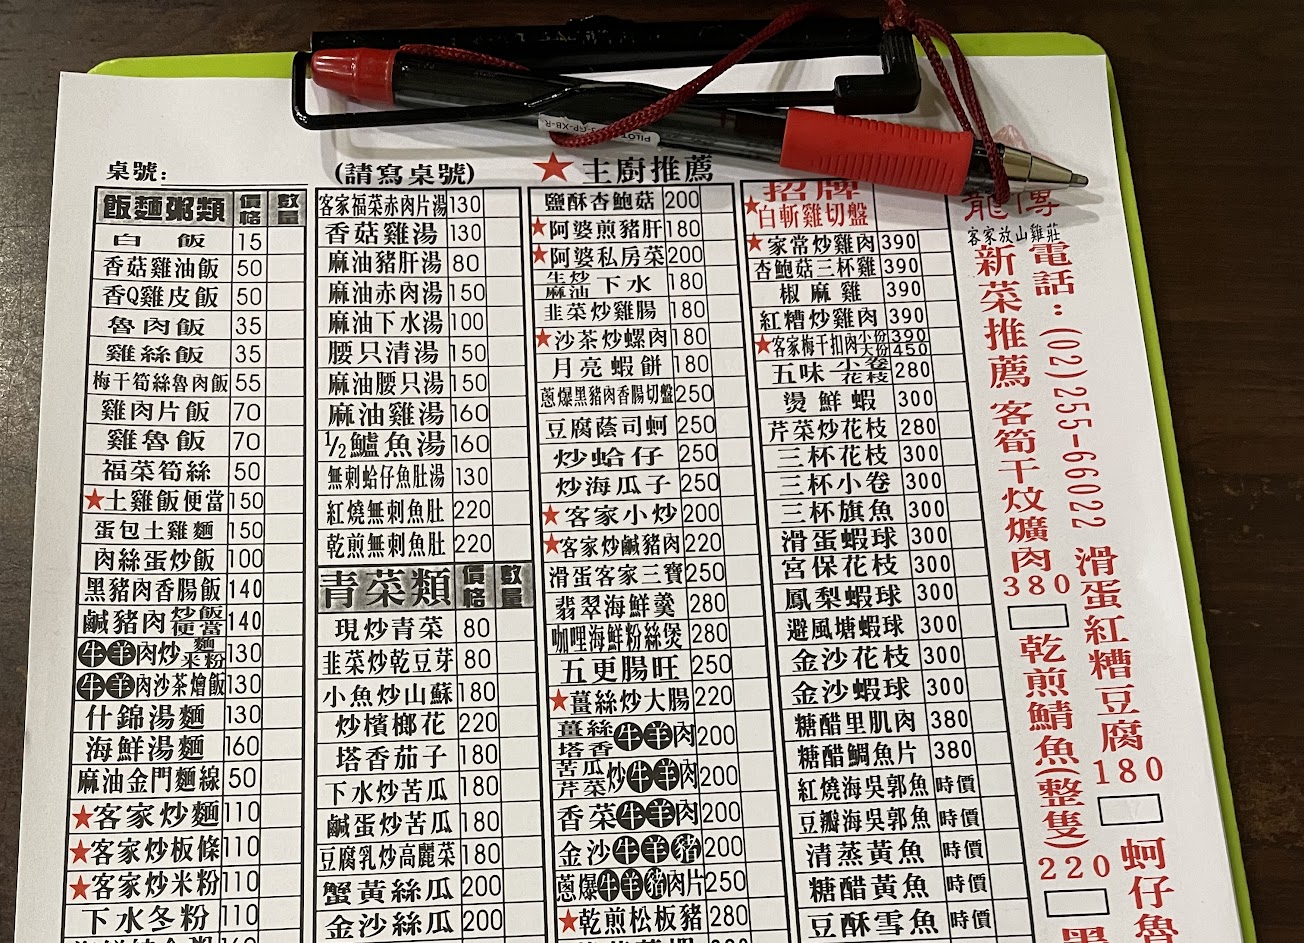 桌號:
(請寫桌號)
★土廚推薦
飯麵粥類 價格 數量
白飯 15
香菇雞油飯 50
香Q雞皮飯 50
魯肉飯 35
雞絲飯 35
梅干筍絲魯肉飯 55
雞肉片飯 70
雞魯飯 70
福菜筍絲 50
★土雞飯便當 150
蛋包土雞麵 150
肉絲蛋炒飯 100
黑豬肉香腸飯 140
鹹豬肉炒飯便當 140
牛羊肉炒麵米粉 130
牛羊肉沙茶燴飯 130
什錦湯麵 130
海鮮湯麵 160
麻油金門麵線 50
★客家炒麵 110
★客家炒板條 110
★客家炒米粉 110
下水冬粉 110
客家福菜赤肉片湯 130
香菇雞湯 130
麻油豬肝湯 80
麻油赤肉湯 150
麻油下水湯 100
腰只清湯 150
麻油腰只湯 150
麻油雞湯 160
½鱸魚湯 160
無刺蛤仔魚肚湯 130
紅燒無刺魚肚 220
乾煎無刺魚肚 220
青菜類 價格 數量
現炒青菜 80
韭菜炒乾豆芽 80
小魚炒山蘇 180
炒檳榔花 220
塔香茄子 180
下水炒苦瓜 180
鹹蛋炒苦瓜 180
豆腐乳炒高麗菜 180
蟹黃絲瓜 200
金沙絲瓜 200
鹽酥杏鮑菇 200
★阿婆煎豬肝 180
★阿婆私房菜 200
生炒麻油下水 180
韭菜炒雞腸 180
★沙茶炒螺肉 180
月亮蝦餅 180
蔥爆黑豬肉香腸切盤 250
豆腐蔭司蚵 250
炒蛤仔 250
炒海瓜子 250
★客家小炒 200
★客家炒鹹豬肉 220
滑蛋客家三寶 250
翡翠海鮮羹 280
咖哩海鮮粉絲煲 280
五更腸旺 250
★薑絲炒大腸 220
薑絲塔香牛羊肉 200
苦瓜芹菜炒牛羊肉 200
香菜牛羊肉 200
金沙牛羊豬 200
蔥爆牛羊豬肉片 250
★乾煎松板豬 280
招牌
★白斬雞切盤
★家常炒雞肉 390
杏鮑菇三杯雞 390
椒麻雞 390
紅糟炒雞肉 390
★客家梅干扣肉 小份390 大份450
五味小卷花枝 280
燙鮮蝦 300
芹菜炒花枝 280
三杯花枝 300
三杯小卷 300
三杯旗魚 300
滑蛋蝦球 300
宮保花枝 300
鳳梨蝦球 300
避風塘蝦球 300
金沙花枝 300
金沙蝦球 300
糖醋里肌肉 380
糖醋鯛魚片 380
紅燒海吳郭魚 時價
豆瓣海吳郭魚 時價
清蒸黃魚 時價
糖醋黃魚 時價
豆酥雪魚 時價
客家放山雞莊
電話:(02)255-66022
新菜推薦
客筍干炆爌肉 380
滑蛋紅糟豆腐 180
乾煎鯖魚(整隻) 220
蚵仔魯